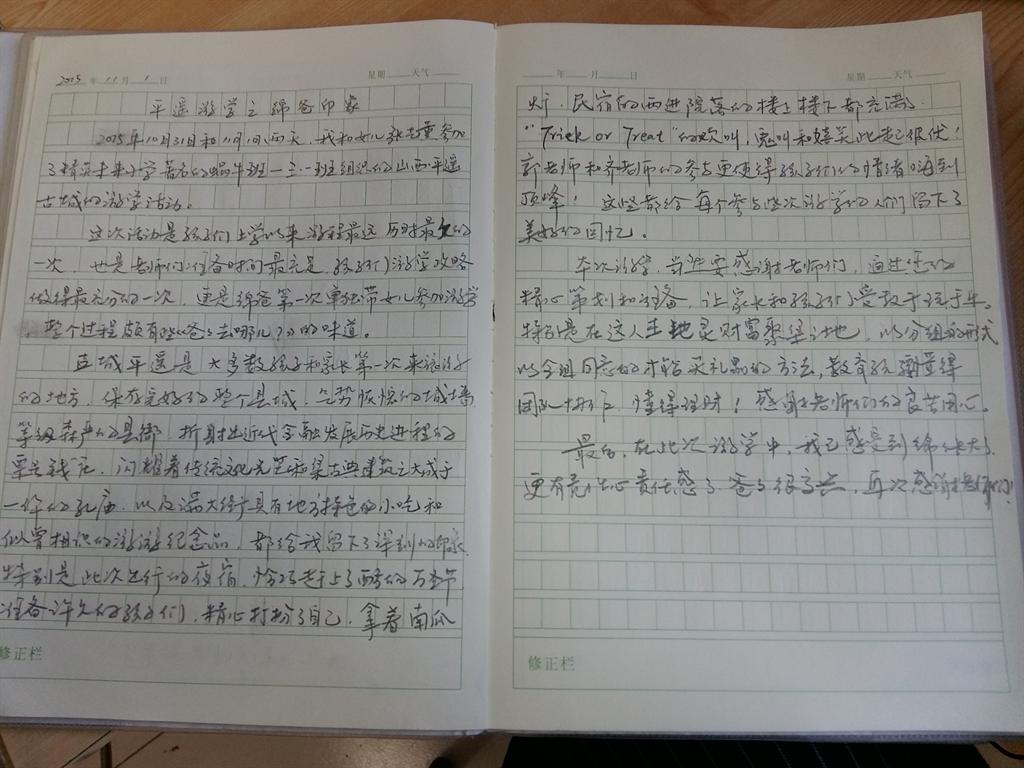 2015年11月1日 星期 天气
平遥游学之绵爸印象
2015年10月31日和11月1日两天，我和女儿张 童参加
了精英未来小学著名的蜗牛班一三·一班组织的山西平遥
古城的游学活动。
这次活动是孩子们上学以来游程最远 历时最久的
一次，也是老师们准备时间最充足，孩子们游学攻略
做得最充分的一次，更是绵爸第一次单独带女儿参加游学
整个过程颇有些《爸爸去哪儿》的味道。
县城平遥是大多数孩子和家长第一次来该游
的地方。保存完好的整个县城，气势恢恢的城墙，
等级森严的县衙，折射出近代金融发展历史进程的
票号钱庄，闪耀着传统文化光芒和集古典建筑之大成于
一体的孔庙，以及满大街具有地方特色的小吃和
似曾相识的旅游纪念品，都给我留下了深刻的印象
特别是此次出行的夜宿，恰巧赶上了西方的万圣节
准备许久的孩子们，精心打扮了自己，拿着南瓜
修正栏
年 月 日 星期 天气
灯，民宿的两进院落的楼上楼下都充满
"Trick or Treat"的欢叫，鬼叫和嬉笑此起彼伏！
郭老师和乔老师的参与更使得孩子们的情绪嗨到
顶峰！这些都给每个参与此次游学的人们留下了
美好的回忆。
本次游学，首先要感谢老师们，通过您的
精心策划和准备，让家长和孩子们受教于玩于乐。
特别是在这人杰地灵财富聚集之地，以分组的形式
以全组同意的才能买礼品的方法，教育孩子 懂得
团队协作，懂得理财！感谢老师们的良苦用心。
最后，在此次游学中，我已感受到绵绵长大了
更有竞争心责任感了，爸爸很高兴，再次感谢老师们！
修正栏